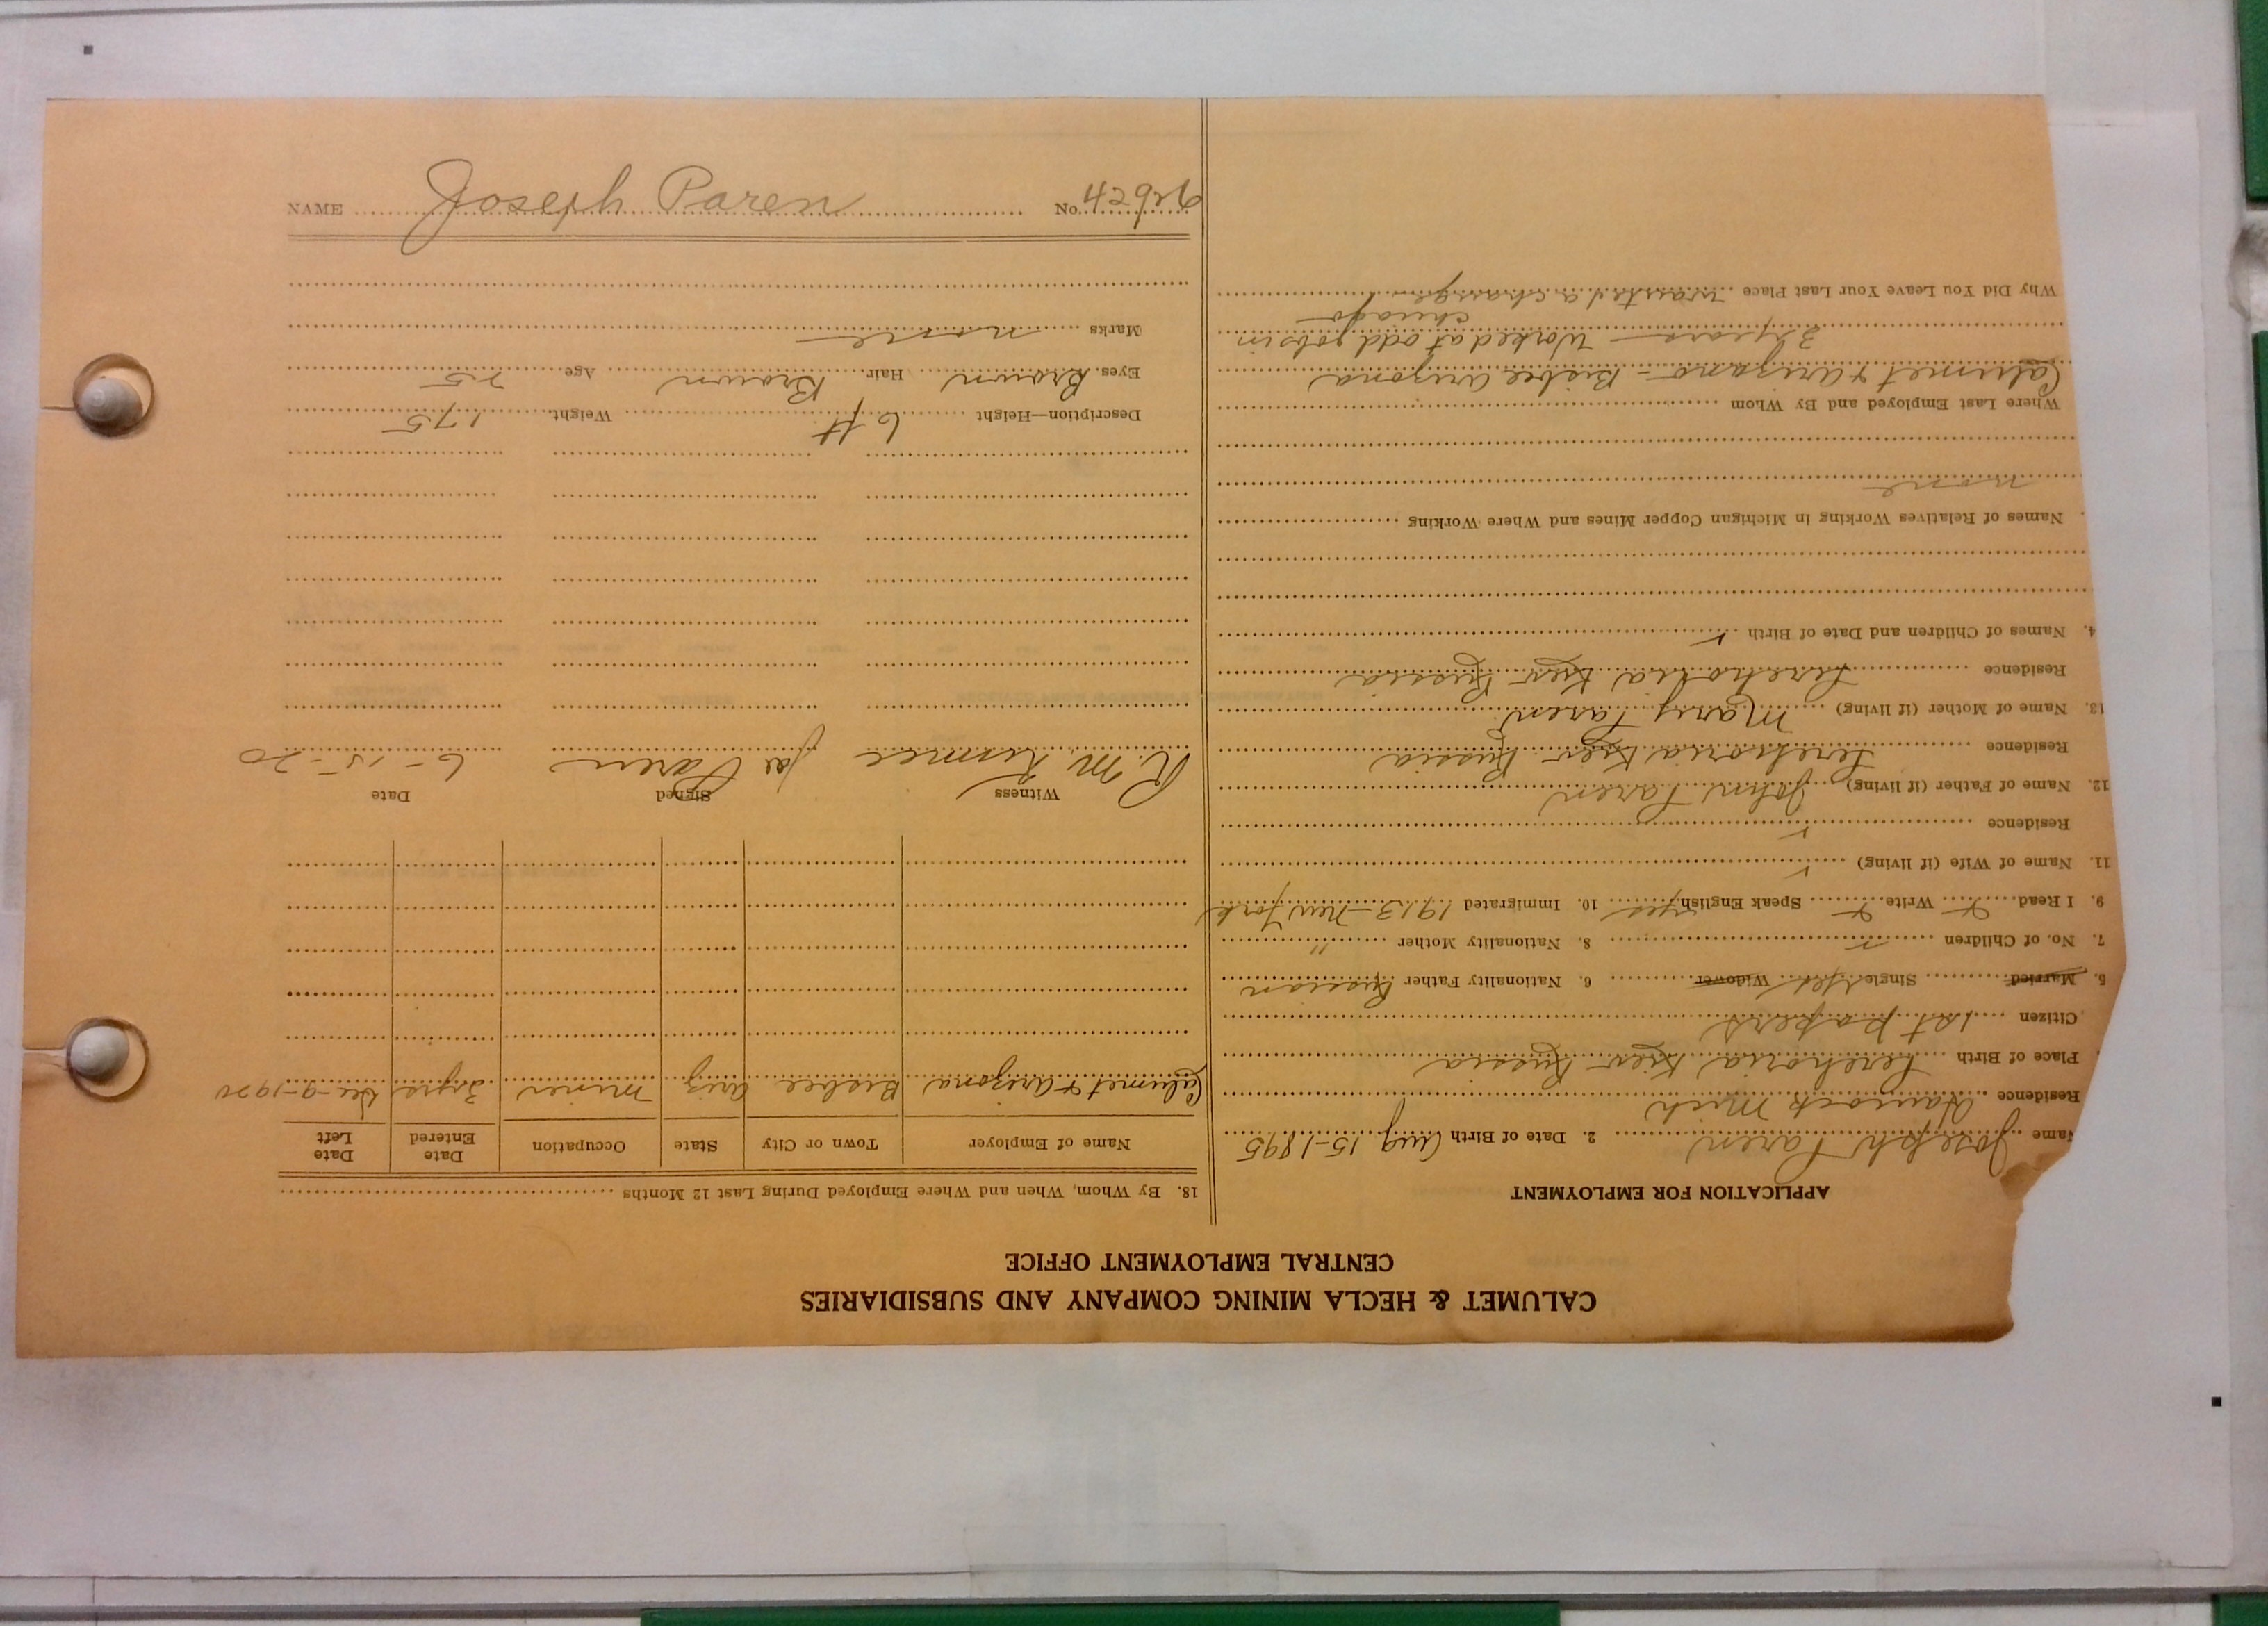 CALUMET & HECLA MINING COMPANY AND SUBSIDIARIES
CENTRAL EMPLOYMENT OFFICE
APPLICATION FOR EMPLOYMENT
Name Joseph Paren 2. Date of Birth Aug 15-1895
Residence Hancock Mich
Place of Birth Kiev Russia
Citizen 1st papers
5. Married Single Yes Widower 6. Nationality Father Russian
7. No. of Children 8. Nationality Mother "
9. I Read Write Speak English yes 10. Immigrated 1913-New York
11. Name of Wife (if living)
Residence
12. Name of Father (if living) John Paren
Residence Kiev Russia
13. Name of Mother (if living) Mary Paren
Residence Kiev Russia
4. Names of Children and Date of Birth
Names of Relatives Working in Michigan Copper Mines and Where Working
none
Where Last Employed and By Whom
Calumet & Arizona - Bisbee Arizona
3 years - Worked at odd jobs in
Chicago
Why Did You Leave Your Last Place wanted a change
18. By Whom, When and Where Employed During Last 12 Months
Name of Employer Town or City State Occupation Date Entered Date Left
Calumet & Arizona Bisbee Ariz miner 3 yrs 9-1920
Witness Signed Date
R. M. Joe Paren 6-15-20
Description—Height 6 ft Weight 175
Eyes Brown Hair Brown Age 25
Marks none
NAME Joseph Paren No. 42926